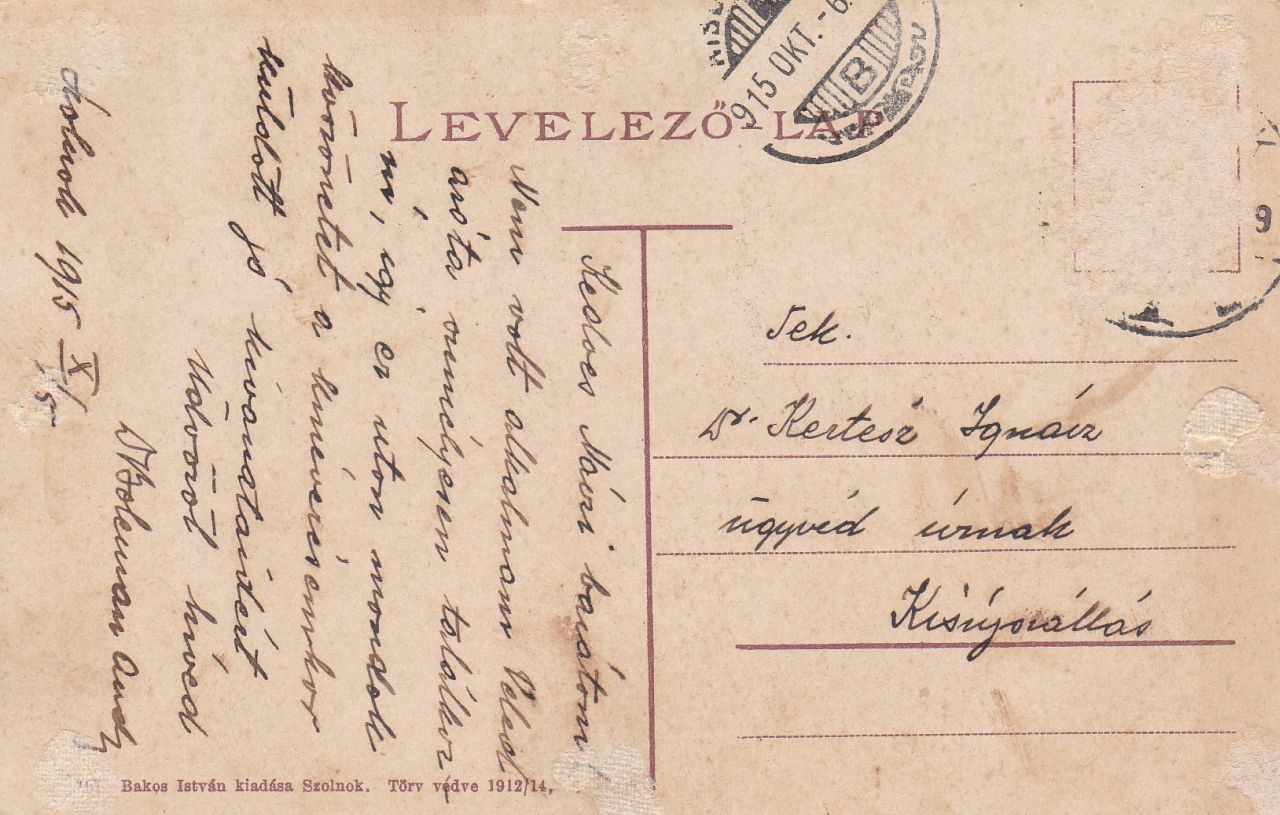 LEVELEZŐ-LAP
915 OKT.-6.
B
Kedves Náczi barátom!
Nem volt alkalmam Veled
azóta személyesen találkoz-
ni, így ez uton mondok
köszönetet a kinevezésemkor
küldött jó kivánataidért
Üdvözöl híved
Dr Boleman
Szolnok 1915 X/5
Tek.
Dr. Kertész Ignácz
ügyvéd úrnak
Kisújszállás
Bakos István kiadása Szolnok. Törv védve 1912/14.